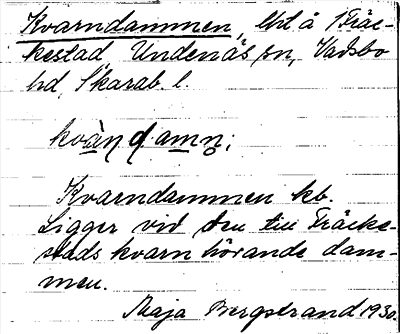 Kvarndammen, Uti å Fräc-
kestad, Undenäs sn, Vadsbo
hd, Skarab. l.
kvàn ɖ amn̥;
Kvarndammen kb.
Ligger vid den till Fräcke-
stads kvarn hörande dam-
men.
Maja Bergstrand 1930.